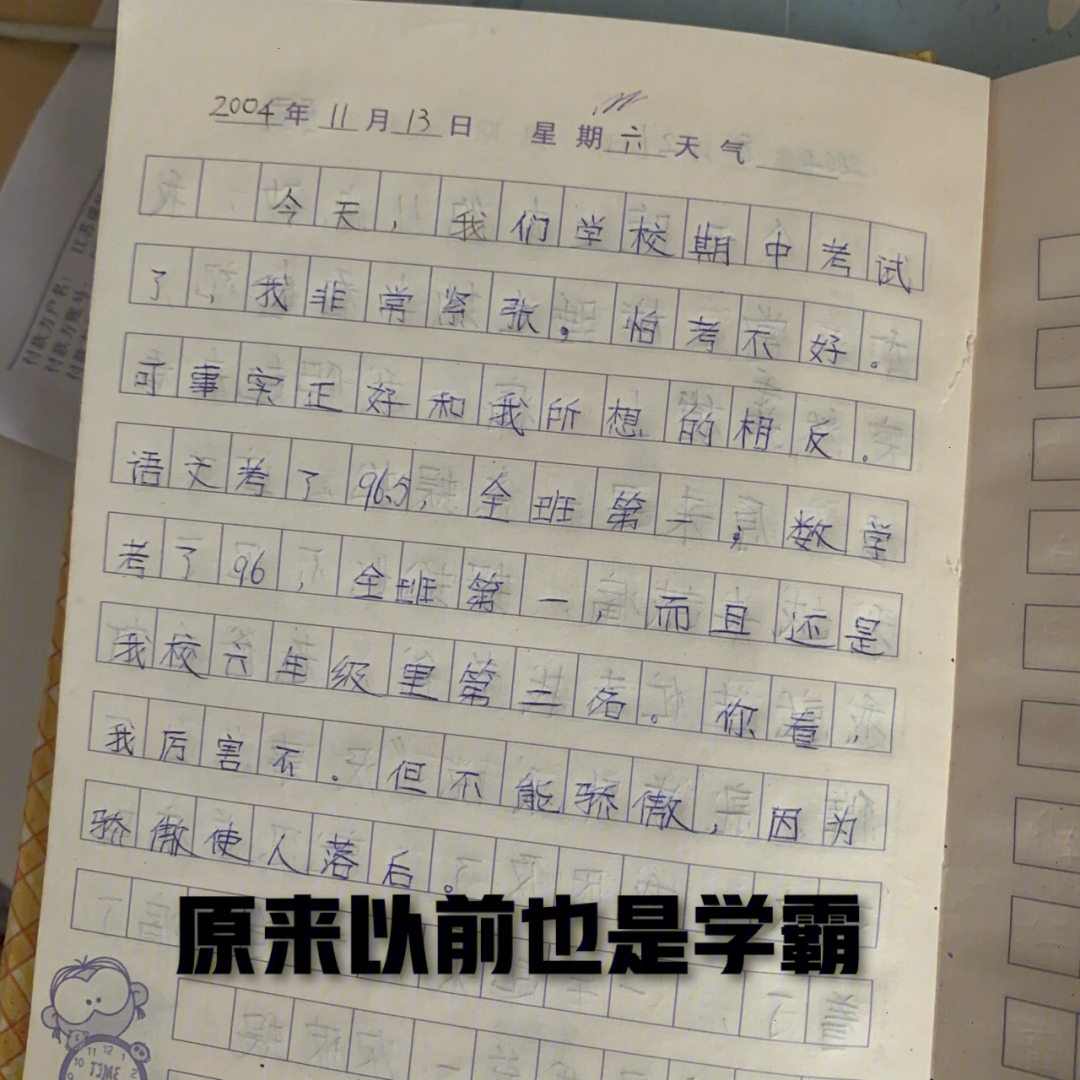 2004年11月13日 星期六天气
今天，我们学校期中考试
了，我非常紧张。怕考不好。
可事实正好和我所想的相反.
语文考了96.5，全班第一，数学
考了96，全班第一，而且还是
我校六年级里第二名。你看
我厉害不.但不能骄傲，因为
骄傲使人落后。
原来以前也是学霸
付款方户名：
付款方账号：
TIME